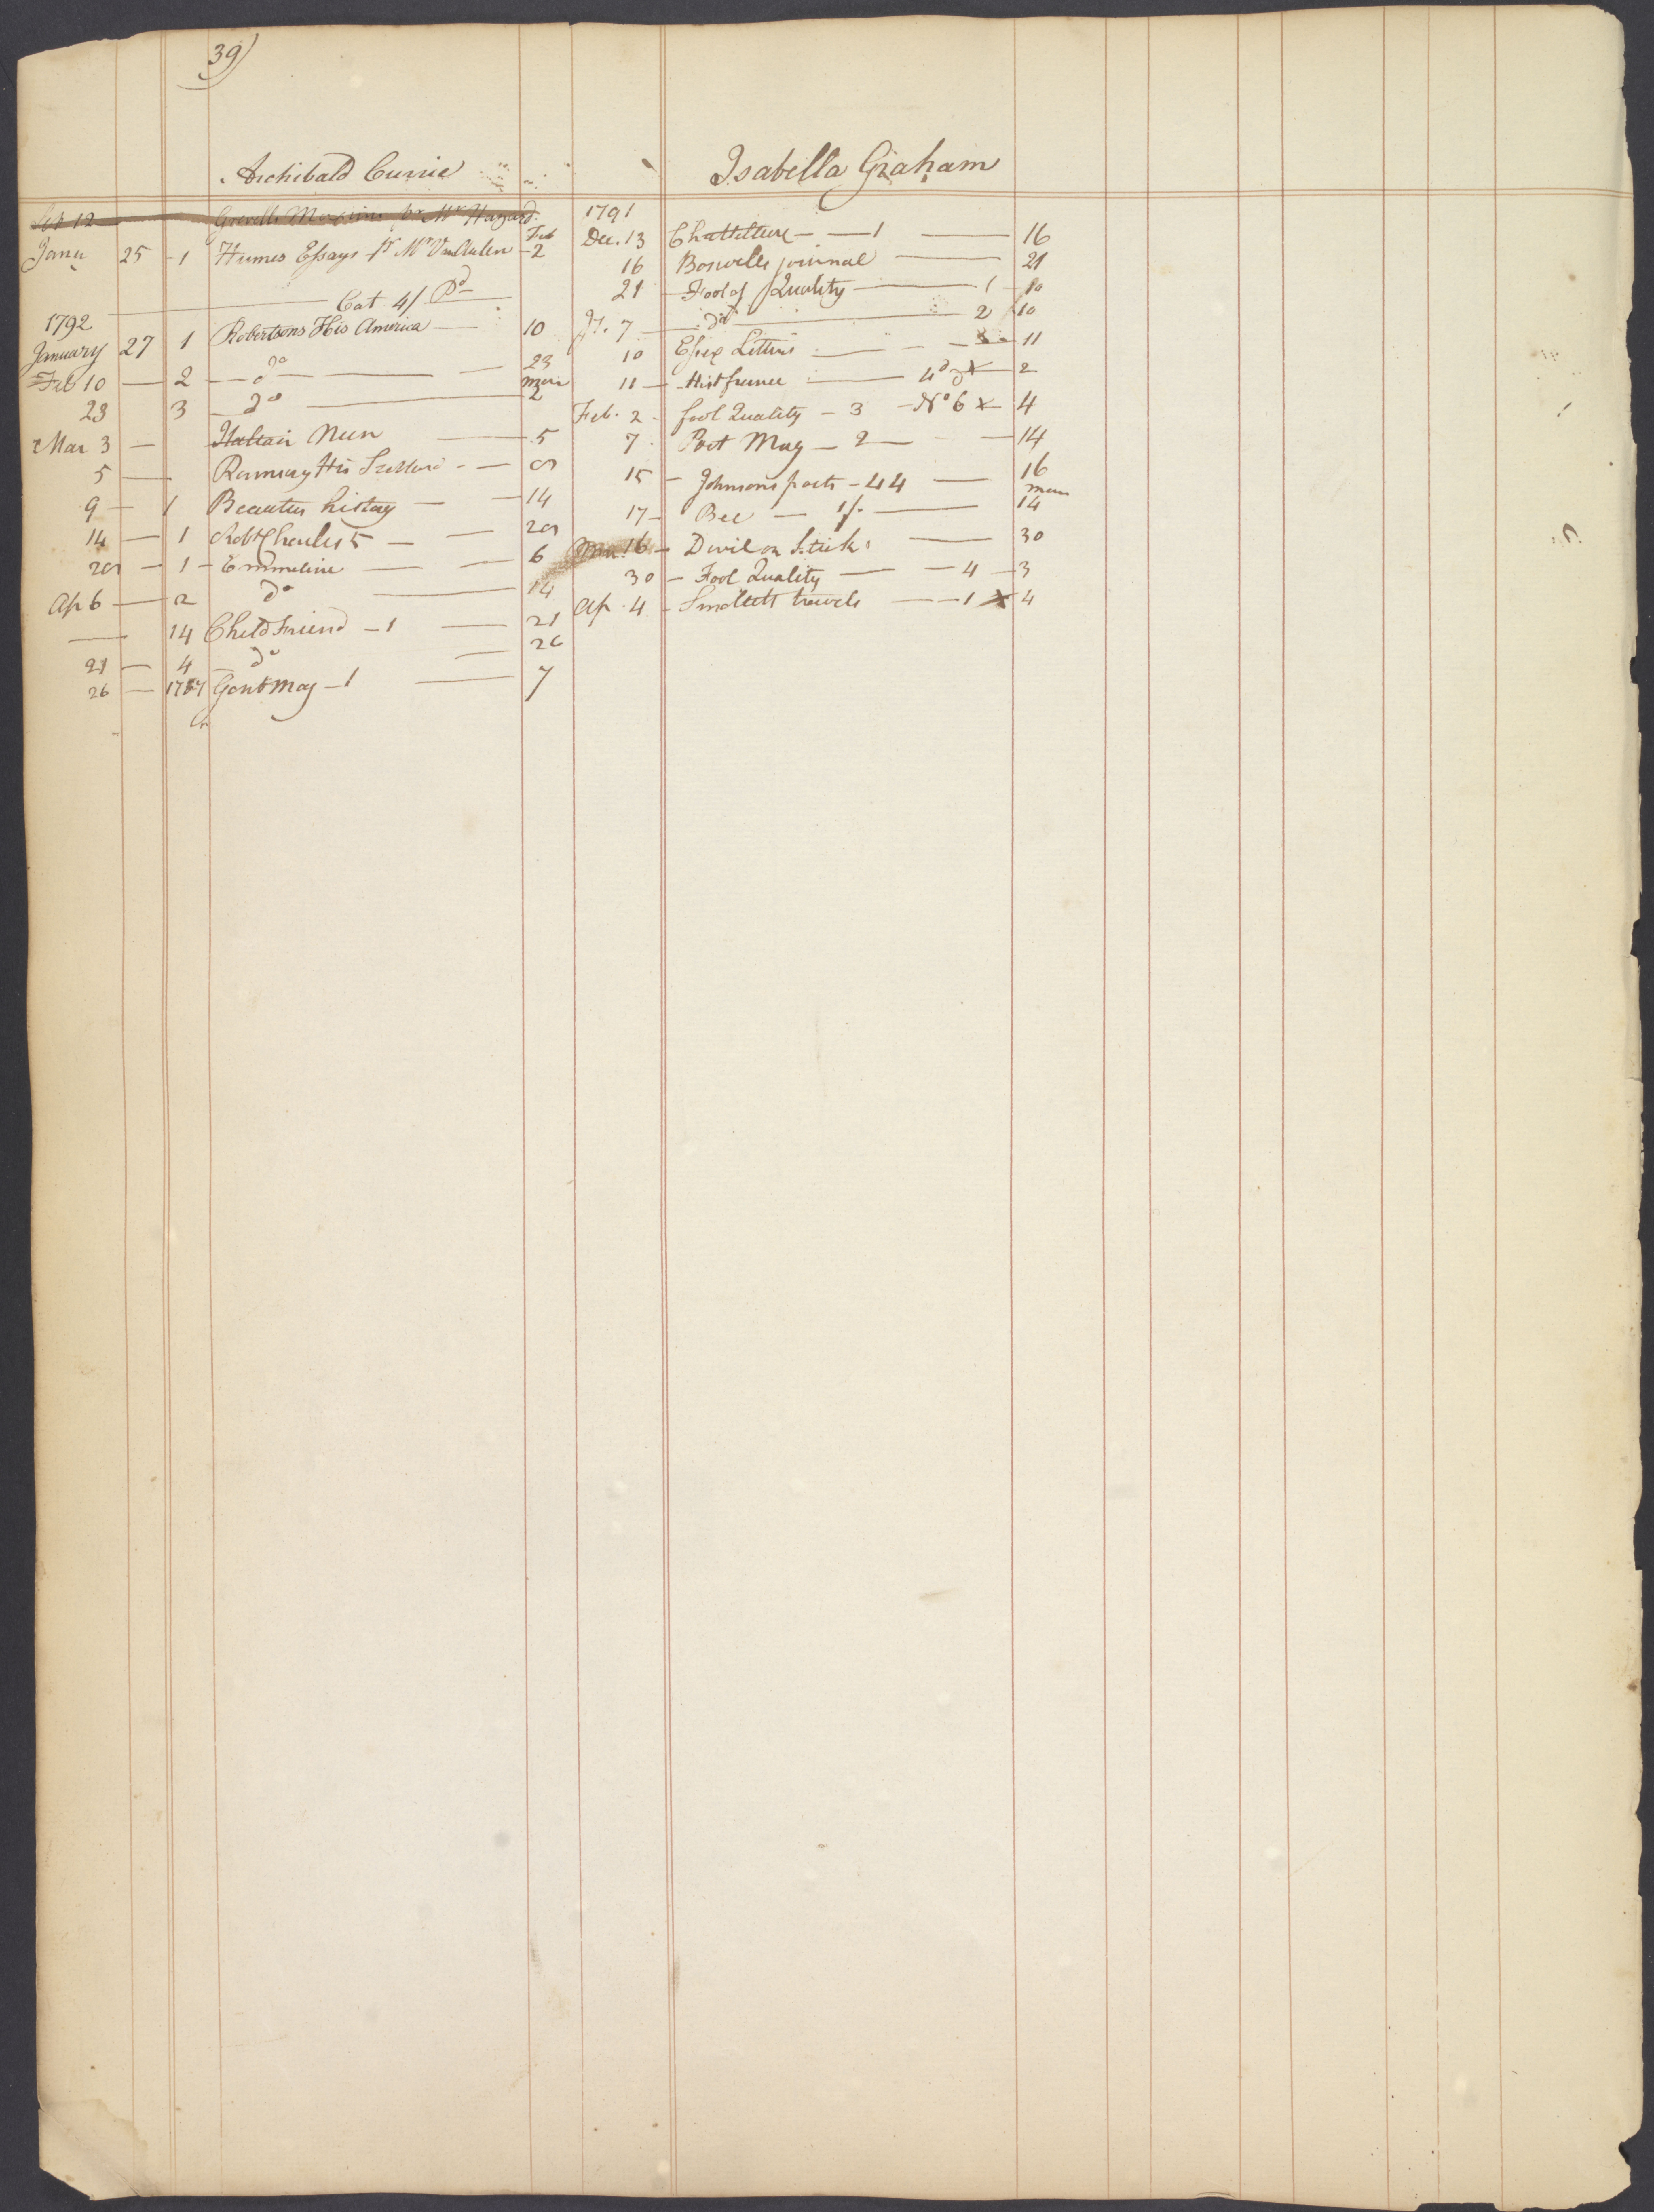 39)
Archibald Currie
Sep 12 Grevill Maxims pr Mr Hazard
Janu 25 - 1 Humes Essays pr Mr VanAulen - Feb 2
Cat 4/ Pd
1792
January 27 1 Robertsons His America — 10
Feb 10 — 2 — do — 23
23 3 — do — Mar 2
Mar 3 — Italian Nun — 5
5 — Ramsay His — 9
9 — 1 Beauties history — 14
14 — 1 Robt Charles 5 — 29
29 — 1 - Emmeline — 6
Ap 6 — 2 do — 14
— 14 Child Friend — 1 — 21
21 — 4 do — 26
26 — 1787 Gent Mag — 1 — 7
Isabella Graham
1791
Dec. 13 — 1 — 16
16 Boswells journal — 21
21 — Fool of Quality — 1 — 10
Ja. 7 — do — 2 10
10 Essex Letters — 11
11 — Hist france — 4 do x — 2
Feb. 2 - fool Quality — 3 — No 6 x — 4
7 - Poet Mag — 2 — 14
15 — Johnsons poets — 44 — 16
17 — Bee — 1/- — Mar 14
Mar. 16 — Devil on Sticks — 30
30 — Fool Quality — 4 — 3
Ap. 4 - Smollett travels — 1 x 4